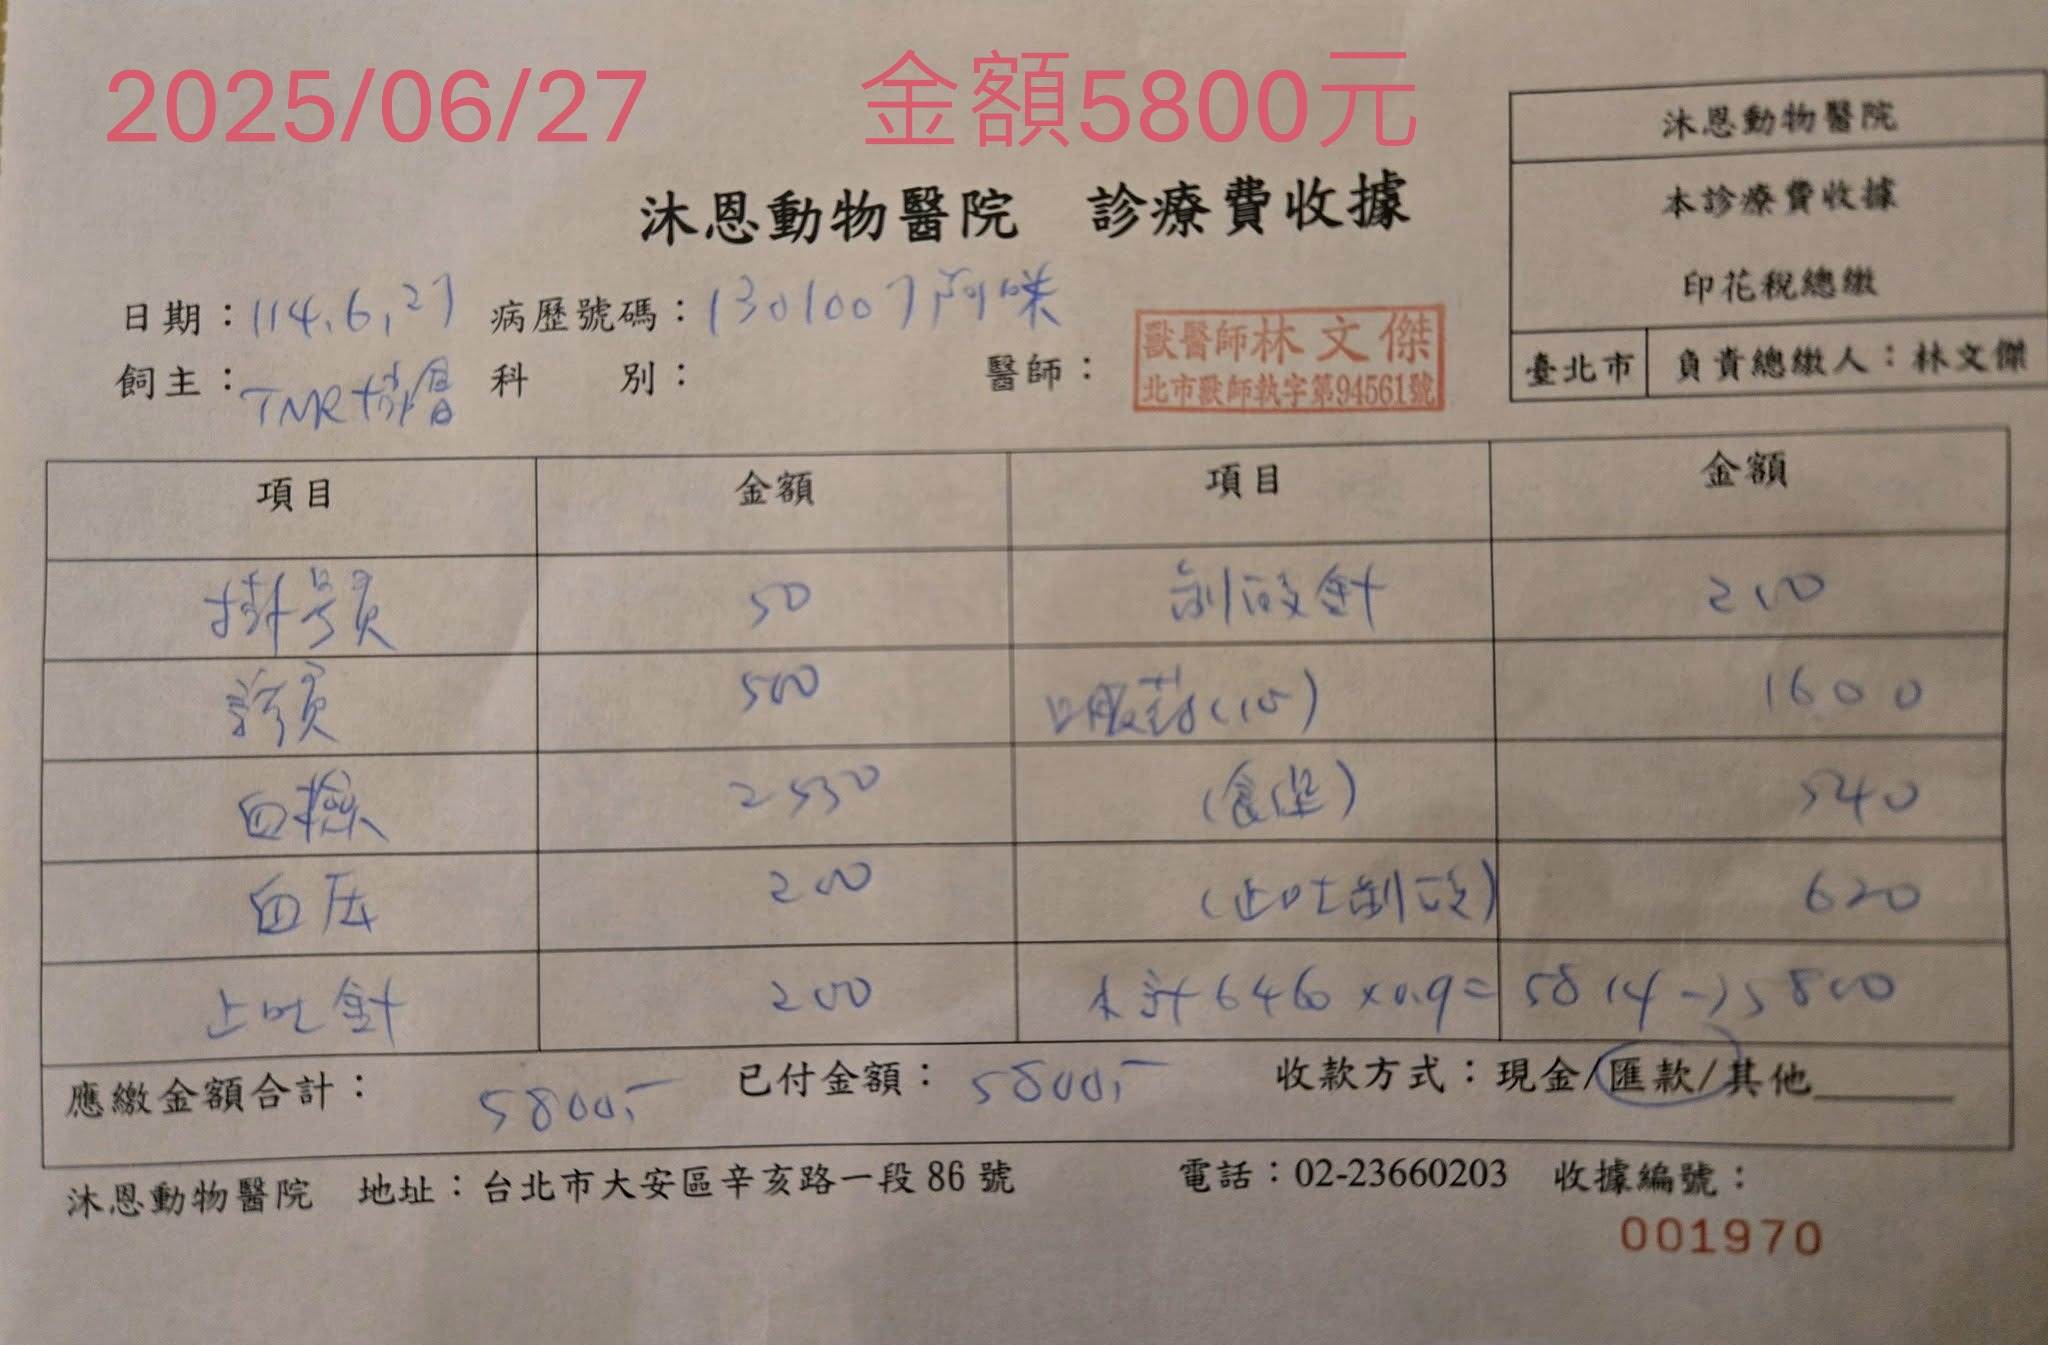 2025/06/27 金額5800元
沐恩動物醫院 診療費收據
沐恩動物醫院
本診療費收據
印花稅總繳
臺北市 負責總繳人：林文傑
日期：114.6.27 病歷號碼：1301007 阿咪
飼主：TNR協會 科 別： 醫師：
獸醫師林文傑
北市獸師執字第94561號
項目 金額 項目 金額
掛號 50 針 200
診 500 口服葯(15) 1600
血檢 2530 540
血压 200 (止吐) 620
止吐針 200 計6460×0.9= 5814→5800
應繳金額合計：5800,- 已付金額：5800,- 收款方式：現金/匯款/其他______
沐恩動物醫院 地址：台北市大安區辛亥路一段86號 電話：02-23660203 收據編號：
001970